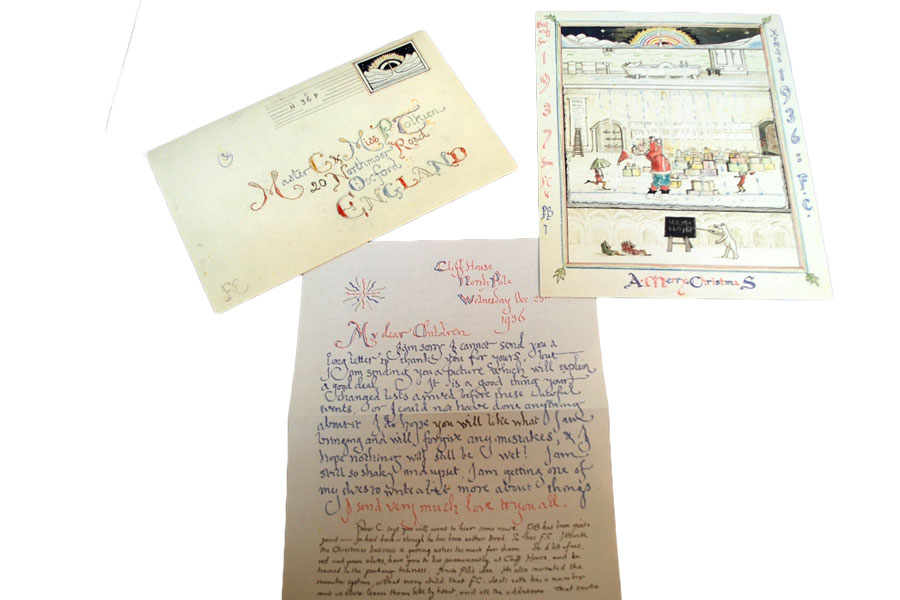 N 36 P
Master C & Miss P T olkien
20 Northmoor Road
Oxford
ENGLAND
FC
1937 from
PB
Xmas 1936 : F.C.
A Merry ChristmaS
Cliff House
North Pole
Wednesday Dec 23rd
1936
My dear Children
I am sorry I cannot send you a
long letter to thank you for yours, but
I am sending you a picture which will explain
a good deal. It is a good thing your
changed lists arrived before these awful
events, or I could not have done anything
about it. I do hope you will like what I am
bringing and will forgive any mistakes, & I
hope nothing will still be wet! I am
still so shaky and upset, I am getting one of
my elves to write a bit more about things.
I send very much love to you all.
Father C. says you will want to hear some news. PB has been quite
good — or had been — though he has been rather tired. So has F.C. I think
the Christmas business is getting rather too much for them. So a lot of us,
red and green elves, have gone to live permanently at Cliff House, and be
trained in the packing business. It was PB's idea. He also invented the
number system, so that every child that F.C. deals with has a number
and we elves learn them all by heart, and all the addresses. That saves